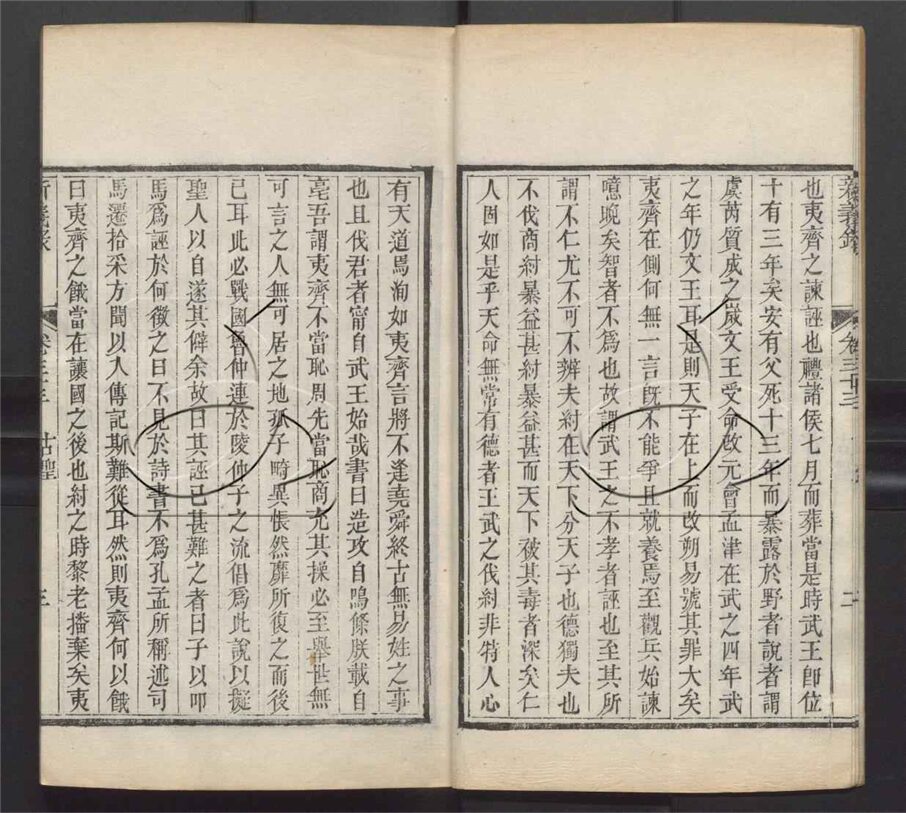 新義錄 卷三十三 二
也夷齊之諫誣也禮諸侯七月而葬當是時武王卽位
十有三年矣安有父死十三年而暴露於野者說者謂
虞芮質成之歲文王受命改元會孟津在武之四年武
之年仍文王耳是則天子在上而改朔易號其罪大矣
夷齊在側何無一言旣不能爭且就養焉至觀兵始諫
噫晚矣智者不爲也故謂武王之不孝者誣也至其所
謂不仁尤不可不辨夫紂在天下分天子也德獨夫也
不伐商紂暴益甚紂暴益甚而天下被其毒者深矣仁
人固如是乎天命無常有德者王武之伐紂非特人心
有天道焉洵如夷齊言將不逢堯舜終古無易姓之事
也且伐君者甯自武王始哉書曰造攻自鳴條朕載自
亳吾謂夷齊不當恥周先當恥商充其操必至舉世無
可言之人無可居之地孤子畸異悵然靡所復之而後
已耳此必戰國魯仲連於陵仲子之流倡爲此說以擬
聖人以自遂其僻余故曰其誣已甚難之者曰子以叩
馬爲誣於何徵之曰不見於詩書不爲孔孟所稱述司
馬遷拾采方聞以入傳記斯難從耳然則夷齊何以餓
曰夷齊之餓當在讓國之後也紂之時黎老播棄矣夷
新義錄 卷三十三 古聖 三